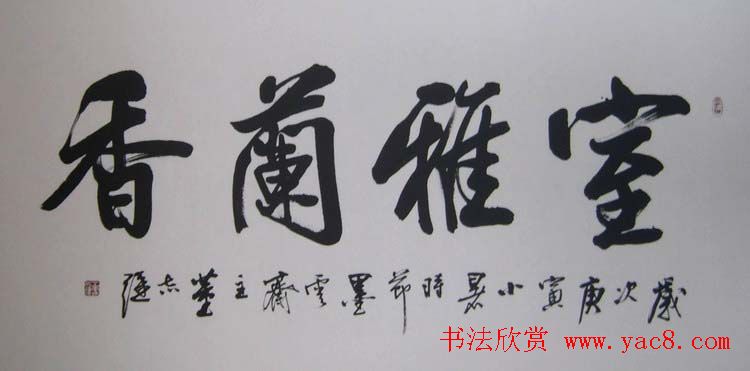 室雅蘭香
歲次庚寅小暑時節墨雲齋主董志
书法欣赏 www.yac8.com